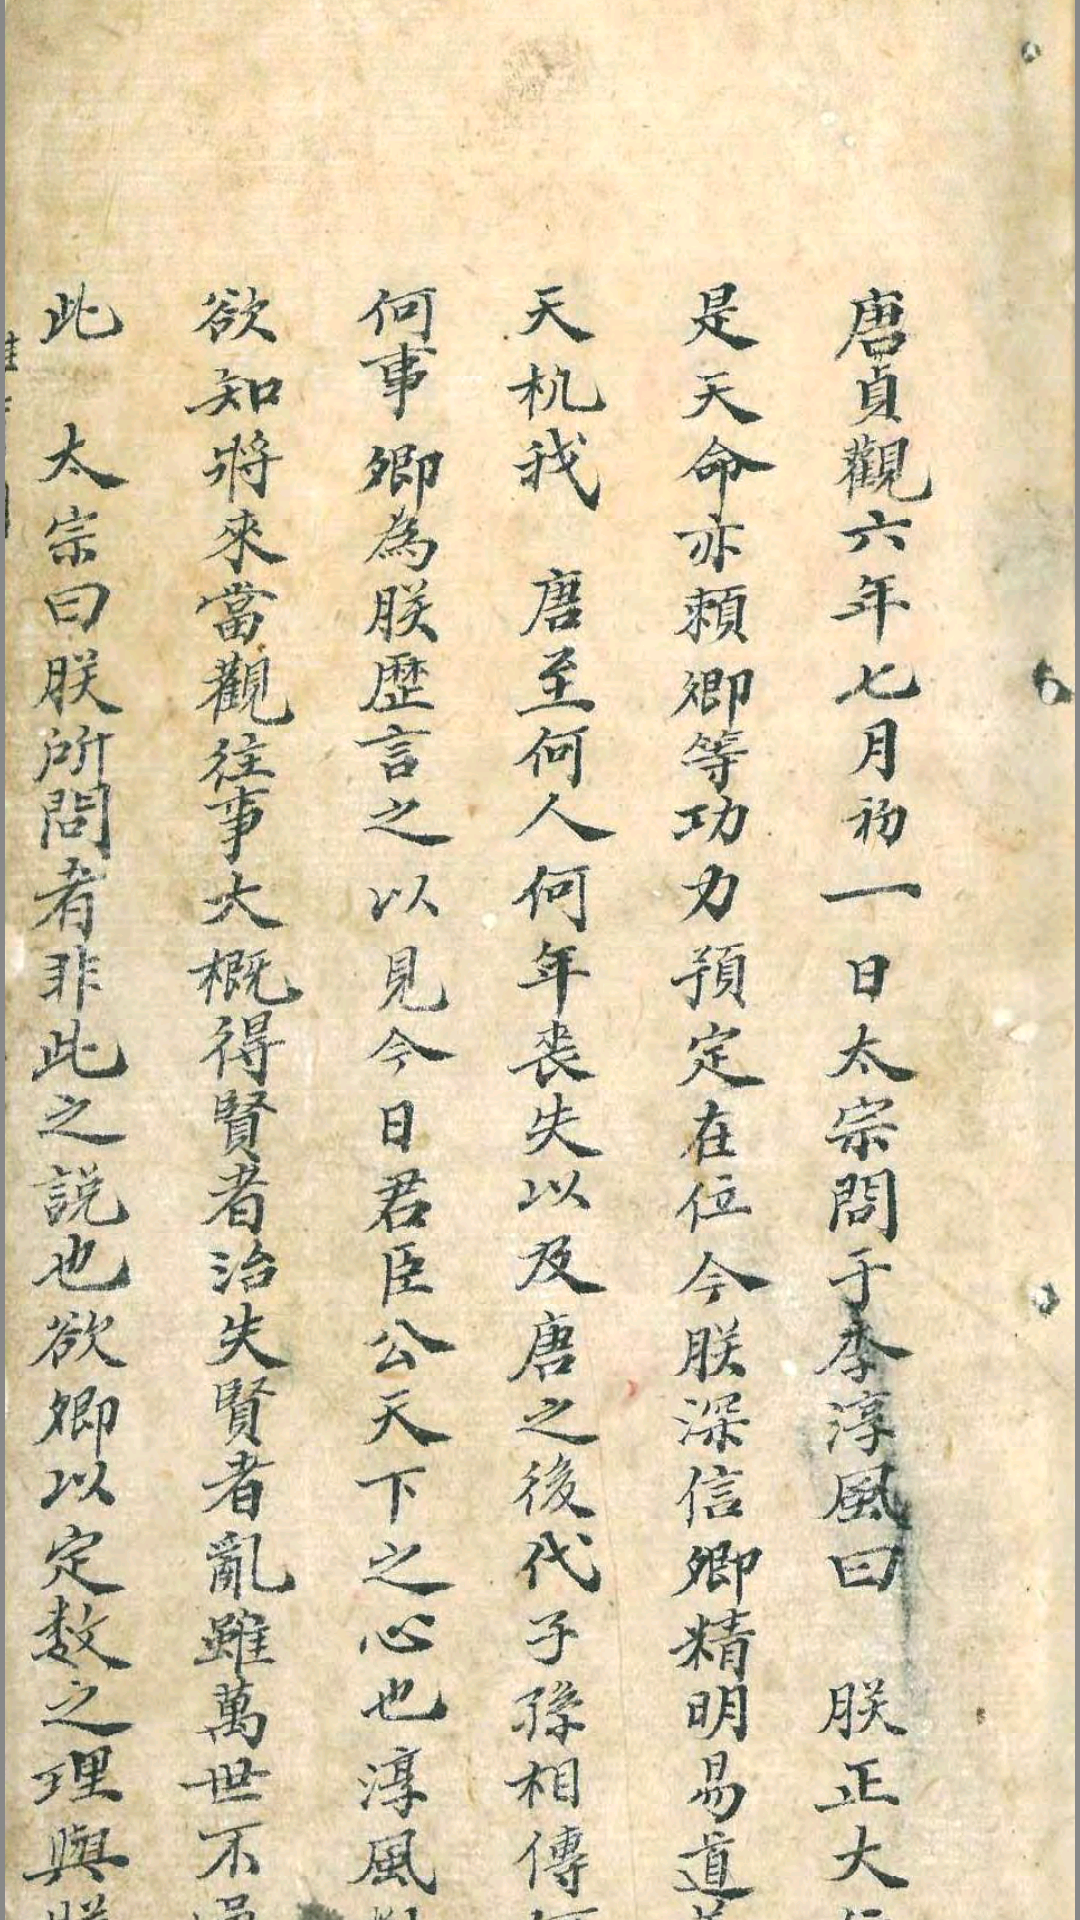 唐貞觀六年七月初一日太宗問于李淳風曰　朕正大
是天命亦賴卿等功力預定在位今朕深信卿精明易道
天机我　唐至何人何年丧失以及唐之後代子孫相傳
何事卿為朕歷言之以見今日君臣公天下之心也淳風
欲知將來當觀往事大概得賢者治失賢者亂雖萬世不
此　太宗曰朕所問者非此之説也欲卿以定数之理與